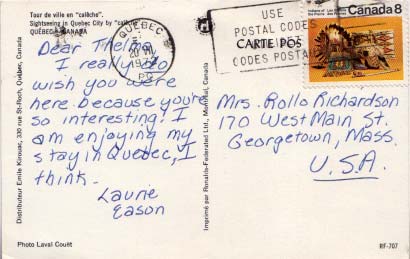 Tour de ville en "calèche".
Sightseeing in Quebec City by "calèche".
QUÉBEC, CANADA
Dear Thelma,
I really do
wish you were
here because you're
so interesting! I
am enjoying my
stay in Quebec, I
think.
Laurie
Eason
Photo Laval Couët
Distributeur Emile Kirouac, 330 rue St-Roch, Québec, Canada
Imprimé par Ronalds-Federated Ltd., Montréal, Canada
QUÉBEC
PQ
USE
POSTAL CODES
CODES POSTAUX
CARTE POS
Canada 8
Mrs. Rollo Richardson
170 West Main St.
Georgetown, Mass.
U.S.A.
RF-707